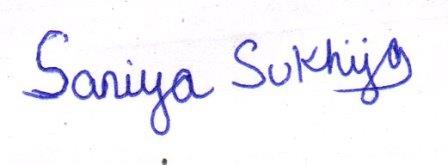 Saniya Sukhija